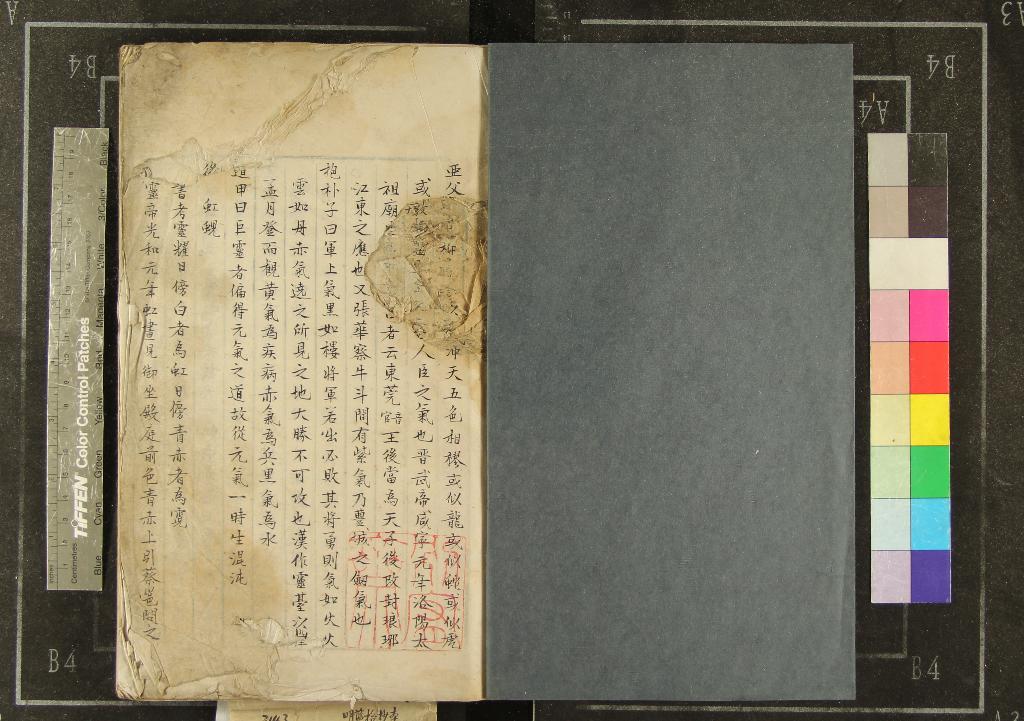 亞父
冲天五色相樛或似龍或似蛇或似虎
或
人臣之氣也晋武帝咸寧元年洛陽太
祖廟
者云東莞音官王後當為天子後改封琅琊
江東之應也又張華察牛斗間有紫氣乃豐城之劍氣也
抱朴子曰軍上氣黑如樓將軍若出必敗其將勇則氣如火火
雲如丹赤氣遶之所見之地大勝不可攻也漢作靈臺以
孟月登而觀黃氣為疾病赤氣為兵黑氣為水
遁甲曰巨靈者偏得元氣之道故從元氣一時生混沌
虹蜺
書考靈耀日傍白者為虹日傍青赤者為霓
靈帝光和元年虹晝見御坐殿庭前色青赤上引蔡邕問之
B4
B4
B4
B4
A4
A3
A
TIFFEN Color Control Patches
Centimetres
Blue
Cyan
Green
Yellow
Red
Magenta
White
3/Color
Black
3143